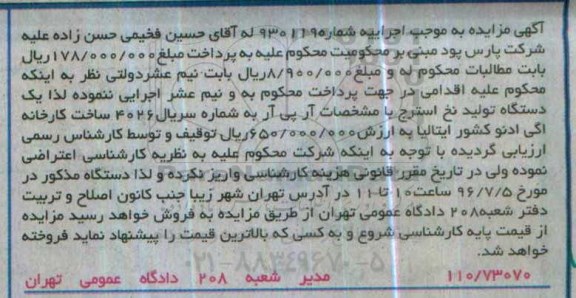 آگهی مزایده به موجب اجراییه شماره۹۳۰۱۱۹ له آقای حسین فخیمی حسن زاده علیه
شرکت پارس پود مبنی بر محکومیت محکوم علیه به پرداخت مبلغ۱۷۸/۰۰۰/۰۰۰ریال
بابت مطالبات محکوم له و مبلغ۸/۹۰۰/۰۰۰ریال بابت نیم عشردولتی نظر به اینکه
محکوم علیه اقدامی در جهت پرداخت محکوم به و نیم عشر اجرایی ننموده لذا یک
دستگاه تولید نخ استرچ با مشخصات آر پی آر به شماره سریال۴۰۲۶ ساخت کارخانه
اگی ادنو کشور ایتالیا به ارزش۶۵۰/۰۰۰/۰۰۰ریال توقیف و توسط کارشناس رسمی
ارزیابی گردیده با توجه به اینکه شرکت محکوم علیه به نظریه کارشناسی اعتراضی
نموده ولی در تاریخ مقرر قانونی هزینه کارشناسی واریز نکرده و لذا دستگاه مذکور در
مورخ ۹۶/۷/۵ ساعت۱۰تا۱۱ در آدرس تهران شهر زیبا جنب کانون اصلاح و تربیت
دفتر شعبه۲۰۸ دادگاه عمومی تهران از طریق مزایده به فروش خواهد رسید مزایده
از قیمت پایه کارشناسی شروع و به کسی که بالاترین قیمت را پیشنهاد نماید فروخته
خواهد شد.
۰۲۱-۸۸۳۴۹۶۷۰-۵
۱۱۰/۷۳۰۷۰ مدیر شعبه ۲۰۸ دادگاه عمومی تهران